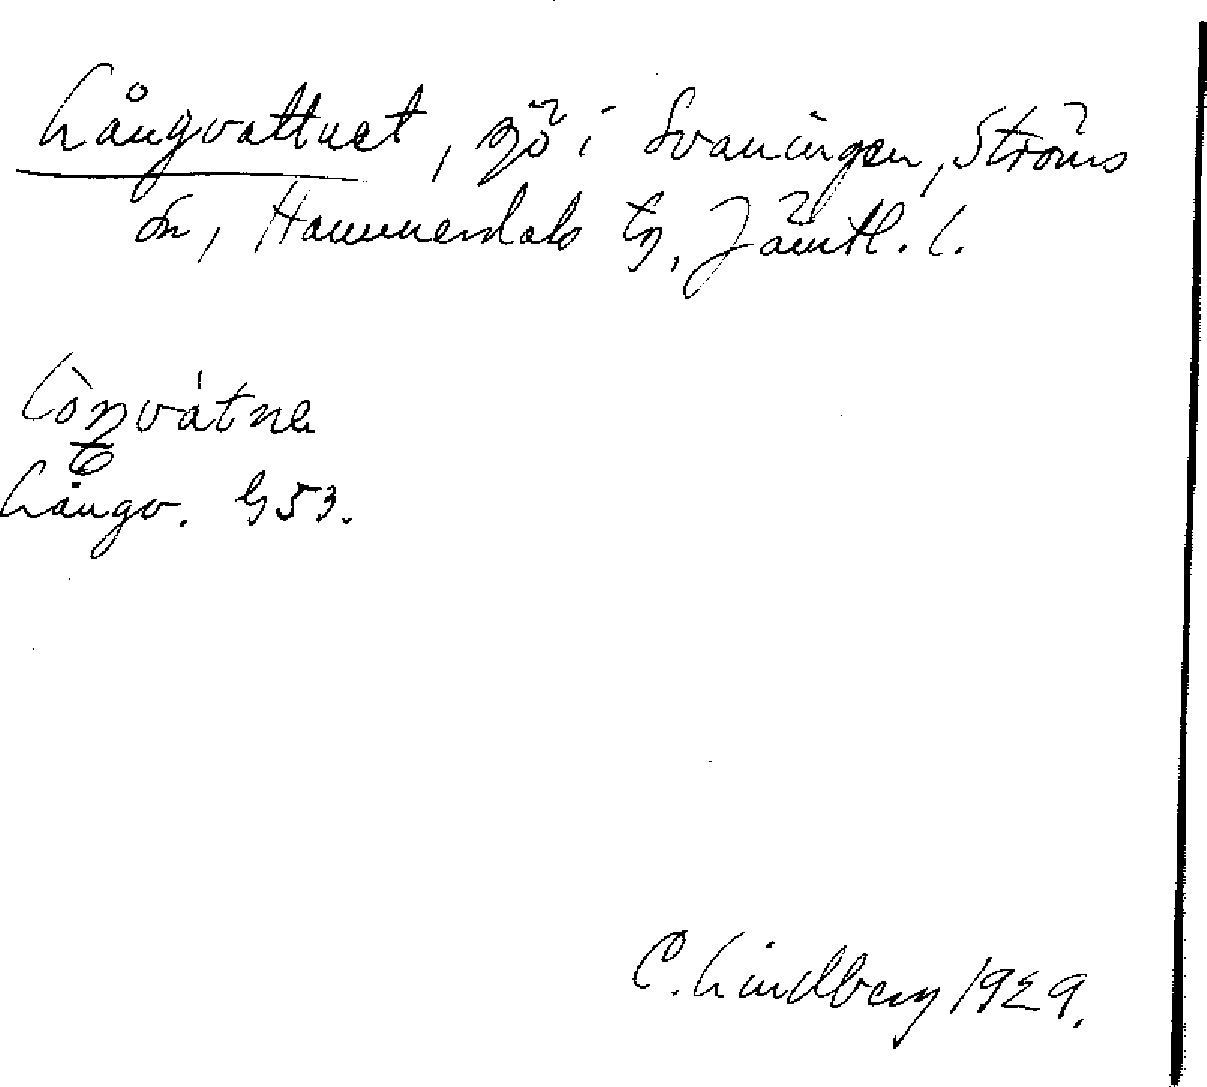 Långvattnet, sjö i Svaningen, Ströms
sn, Hammerdals tg, Jämtl. l.
Lòŋvátnɐ
Långv. G53.
C. Lindberg 1929.